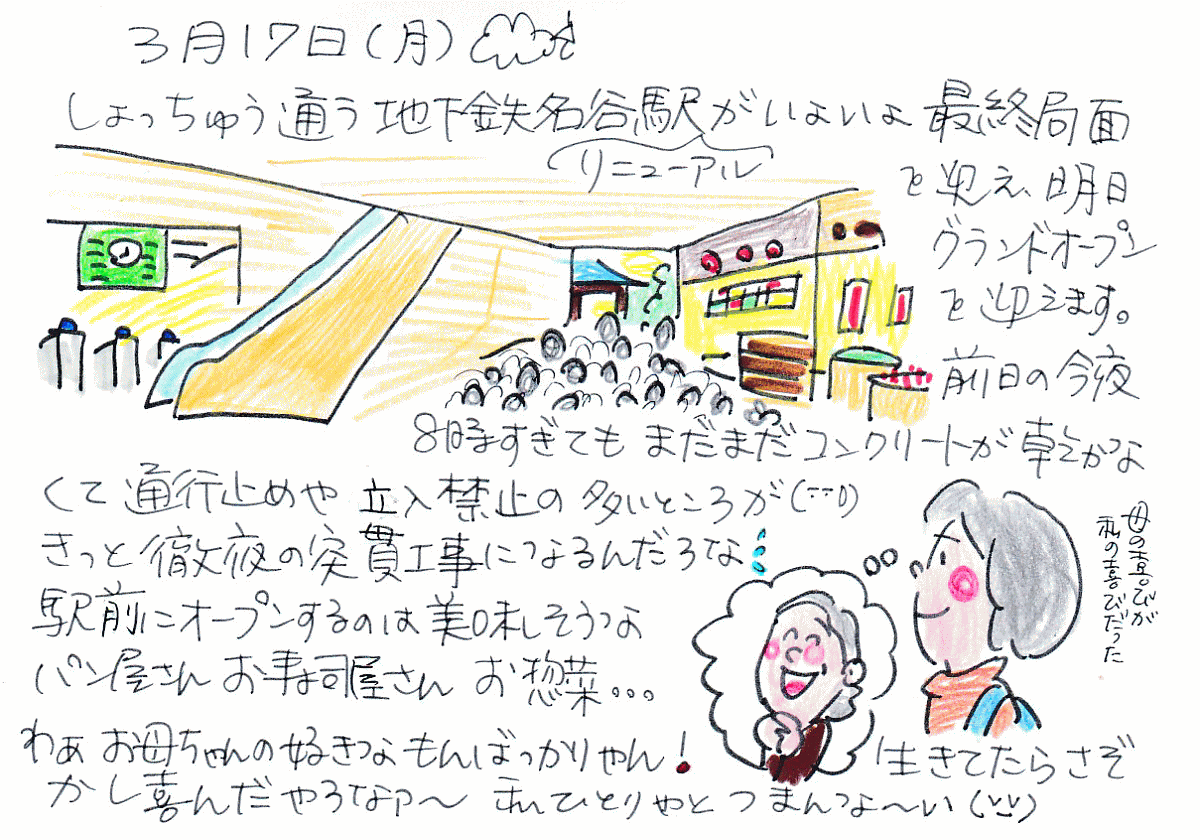 3月17日(月)
しょっちゅう通う地下鉄名谷駅がいよいよ最終局面
リニューアル
を迎え、明日
グランドオープン
を迎えます。
前日の今夜
8時すぎても まだまだコンクリートが乾かな
くて通行止めや立入禁止の多いところが
きっと徹夜の突貫工事になるんだろな
駅前にオープンするのは美味しそうな
パン屋さん お寿司屋さん お惣菜...
わぁ お母ちゃんの好きなもんばっかりやん!
生きてたらさぞ
かし喜んだやろなァ〜 私ひとりやとつまんな〜い
母の喜びが
私の喜びだった